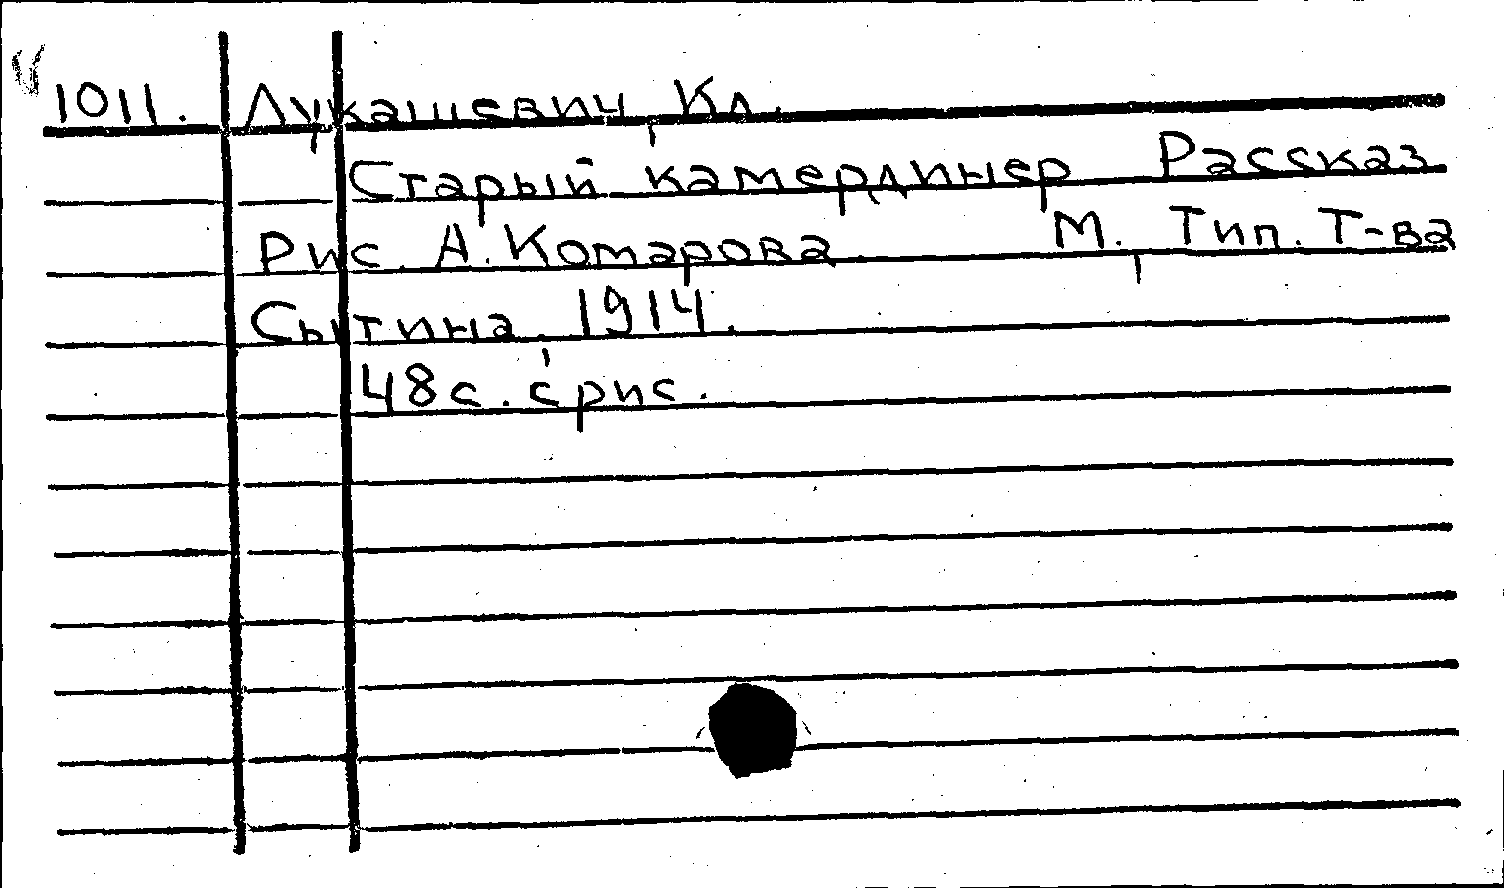 1011. Лукашевич, Кл.
Старый камердинер Рассказ
Рис. А. Комарова. М., Тип. Т-ва
Сытина, 1914.
48 с. с рис.